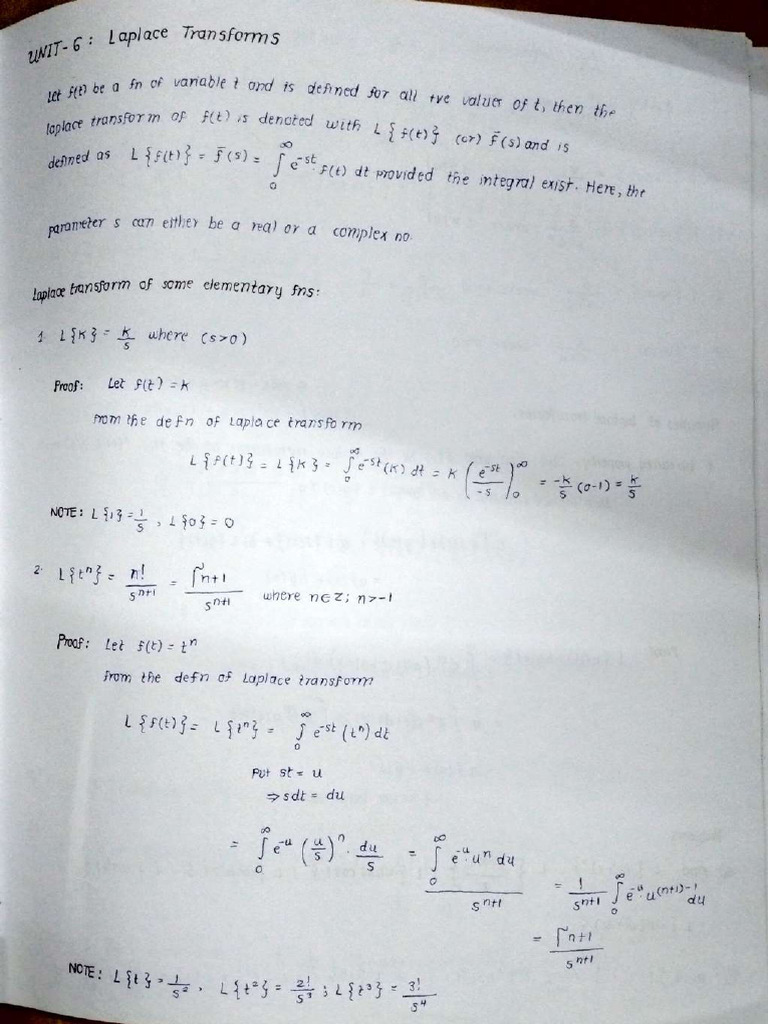 UNIT-6: Laplace Transforms
Let f(t) be a fn of variable t and is defined for all +ve values of t, then the
laplace transform of f(t) is denoted with L{f(t)} (or) f̄(s) and is
defined as L{f(t)} = f̄(s) = ∫₀^∞ e^-st. f(t) dt provided the integral exist. Here, the
parameter s can either be a real or a complex no.
Laplace transform of some elementary fns:
1. L{K} = K/s where (s>0)
Proof: Let f(t) = K
From the defn of Laplace transform
L{f(t)} = L{K} = ∫₀^∞ e^-st (K) dt = K (e^-st/-s)₀^∞ = -K/s (0-1) = K/s
NOTE: L{1} = 1/s, L{0} = 0
2. L{t^n} = n!/s^n+1 = Γn+1/s^n+1 where n∈Z; n>-1
Proof: Let f(t) = t^n
From the defn of Laplace transform
L{f(t)} = L{t^n} = ∫₀^∞ e^-st (t^n) dt
Put st = u
⇒ sdt = du
= ∫₀^∞ e^-u (u/s)^n . du/s = ∫₀^∞ e^-u. u^n du/s^n+1 = 1/s^n+1 ∫₀^∞ e^-u. u^(n+1)-1 du
= Γn+1/s^n+1
NOTE: L{t} = 1/s^2, L{t^2} = 2!/s^3; L{t^3} = 3!/s^4